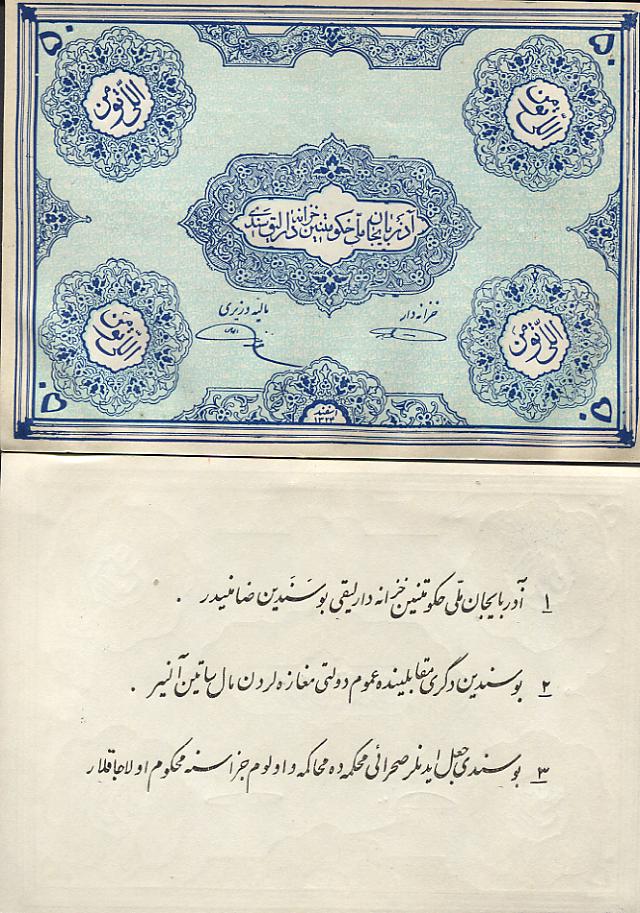 ۵۰ ۵۰
اللی تومن
آذربایجان ملی حکومتینین خزانه دارلیق سندی
خزانه دار مالیه وزیری
اللی تومن
اسفند
۱۳۲۴
۵۰ ۵۰
۱ آذربایجان ملّی حکومتنین خزانه دارلیقی بو سَنَدین ضامنیدر .
۲ بو سندین دگری مقابلینده عموم دولتی مغازه لردن مال ساتین آلنیر .
۳ بو سندی جعل ایدنلر صحرائی محکمه ده محاکمه و اولوم جزاسنه محکوم اولاجاقلار